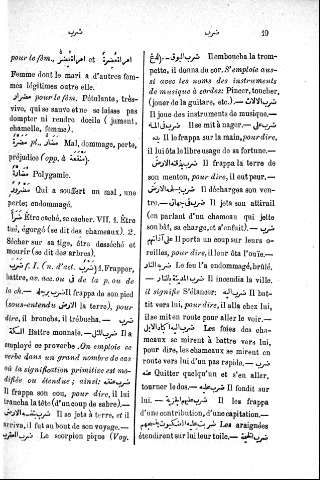 ضرب
ضرب
19
pour le fém. امرأة مضرّة et امرأة مضر
Femme dont le mari a d'autres fem-
mes légitimes outre elle.
مضرار pour le fém. Pétulante, très-
vive, qui se sauve et ne se laisse pas
dompter ni rendre docile (jument,
chamelle, femme).
مضرّة pl. مضارّ Mal, dommage, perte,
préjudice (opp. à منفعة).
مضارّة Polygamie.
مضرور Qui a souffert un mal, une
perte; endommagé.
ضرأ Être caché, se cacher. VII. 1. Être
tué, égorgé (se dit des chameaux). 2.
Sécher sur sa tige, être desséché et
mourir (se dit des arbres).
ضرب f. I. (n. d'act. ضرب) 1. Frapper,
battre, ac. acc. ou de la p. ou de
la ch. — ضرب برجله Il frappa de son pied
(sous-entendu الارض la terre), pour
dire, il broncha, il trébucha. — ضرب
السكة Battre monnaie. — ضرب المثل Il a
employé ce proverbe. On emploie ce
verbe dans un grand nombre de cas
où la signification primitive est mo-
difiée ou étendue; ainsi: ضرب عنقه
Il frappa son cou, pour dire, il lui
trancha la tête (d'un coup de sabre). —
ضرب بنفسه الارض Il se jeta à terre, et il
arriva, il fut au bout de son voyage. —
ضرب العقرب Le scorpion pique (Voy.
ضرب البوق — (لدغ Il emboucha la trom-
pette, il donna du cor. S'emploie aus-
si avec les noms des instruments
de musique à cordes: Pincer, toucher,
(jouer de la guitare, etc.). — ضرب الالات
Il joue des instruments de musique. —
ضرب في الماء Il se mit à nager. — ضرب على
يده Il le frappa sur la main, pour dire,
il lui ôta le libre usage de sa fortune. —
ضرب بذقنه الارض Il frappa la terre de
son menton, pour dire, il eut peur. —
ضرب الارض Il déchargea son ven-
tre. — ضرب في جهازه Il jeta son attirail
(en parlant d'un chameau qui jette
son bât, sa charge, et s'enfuit). — ضرب
على آذانهم Il porta un coup sur leurs o-
reilles, pour dire, il leur ôta l'ouïe. —
ضرب النار Le feu l'a endommagé, brûlé.
ضرب النار — Il incendia la ville.
il signifie S'élancer: ضرب اليه Il bat-
tit vers lui, pour dire, il alla chez lui,
il se mit en route pour aller le voir. —
ضرب اليه اكباد الابل Les foies des cha-
meaux se mirent à battre vers lui,
pour dire, les chameaux se mirent en
route vers lui d'un pas rapide. — ضرب
عنه Quitter quelqu'un et s'en aller,
tourner le dos. — ضرب عليه Il fondit sur
lui. — ضرب عليهم الجزية Il les frappa
d'une contribution, d'une capitation. —
ضربت عليه العنكبوت بنسجهم Les araignées
étendirent sur lui leur toile. — ضرب الخيمة